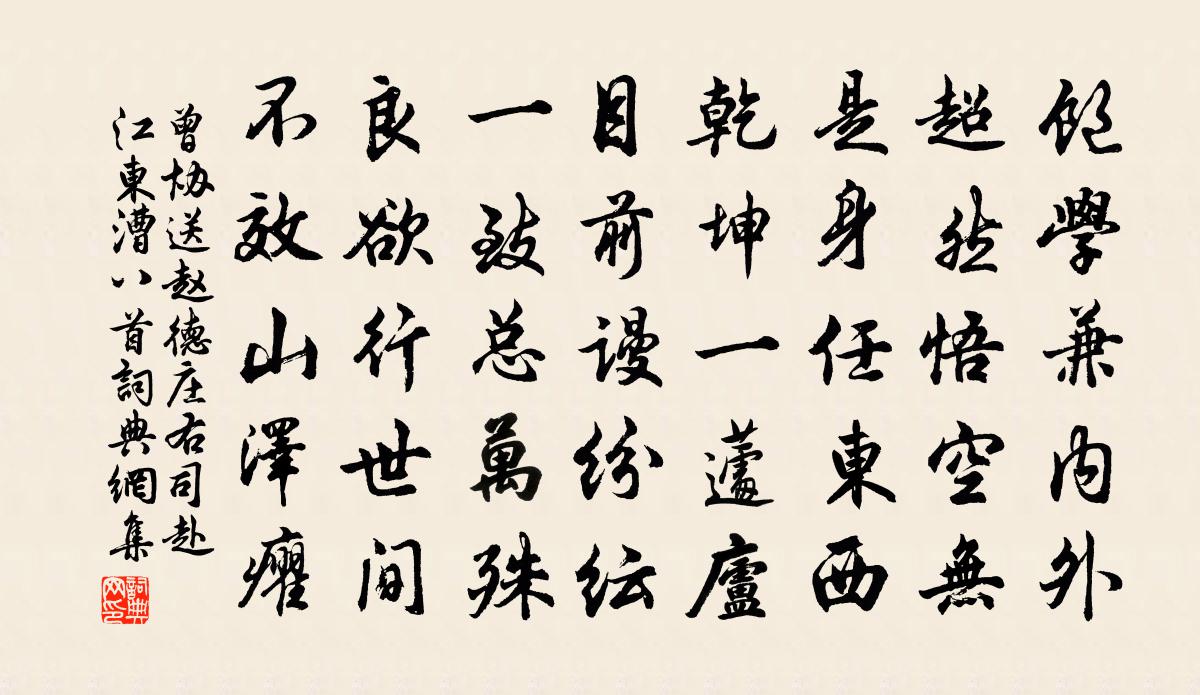 飽學兼内外
超然悟空無
是身任東西
乾坤一蘧廬
目前謾紛纭
一致总萬殊
良欲行世間
不效山澤癯
曾協送赵德庄右司赴
江東漕八首詞典網集
詞典
网印